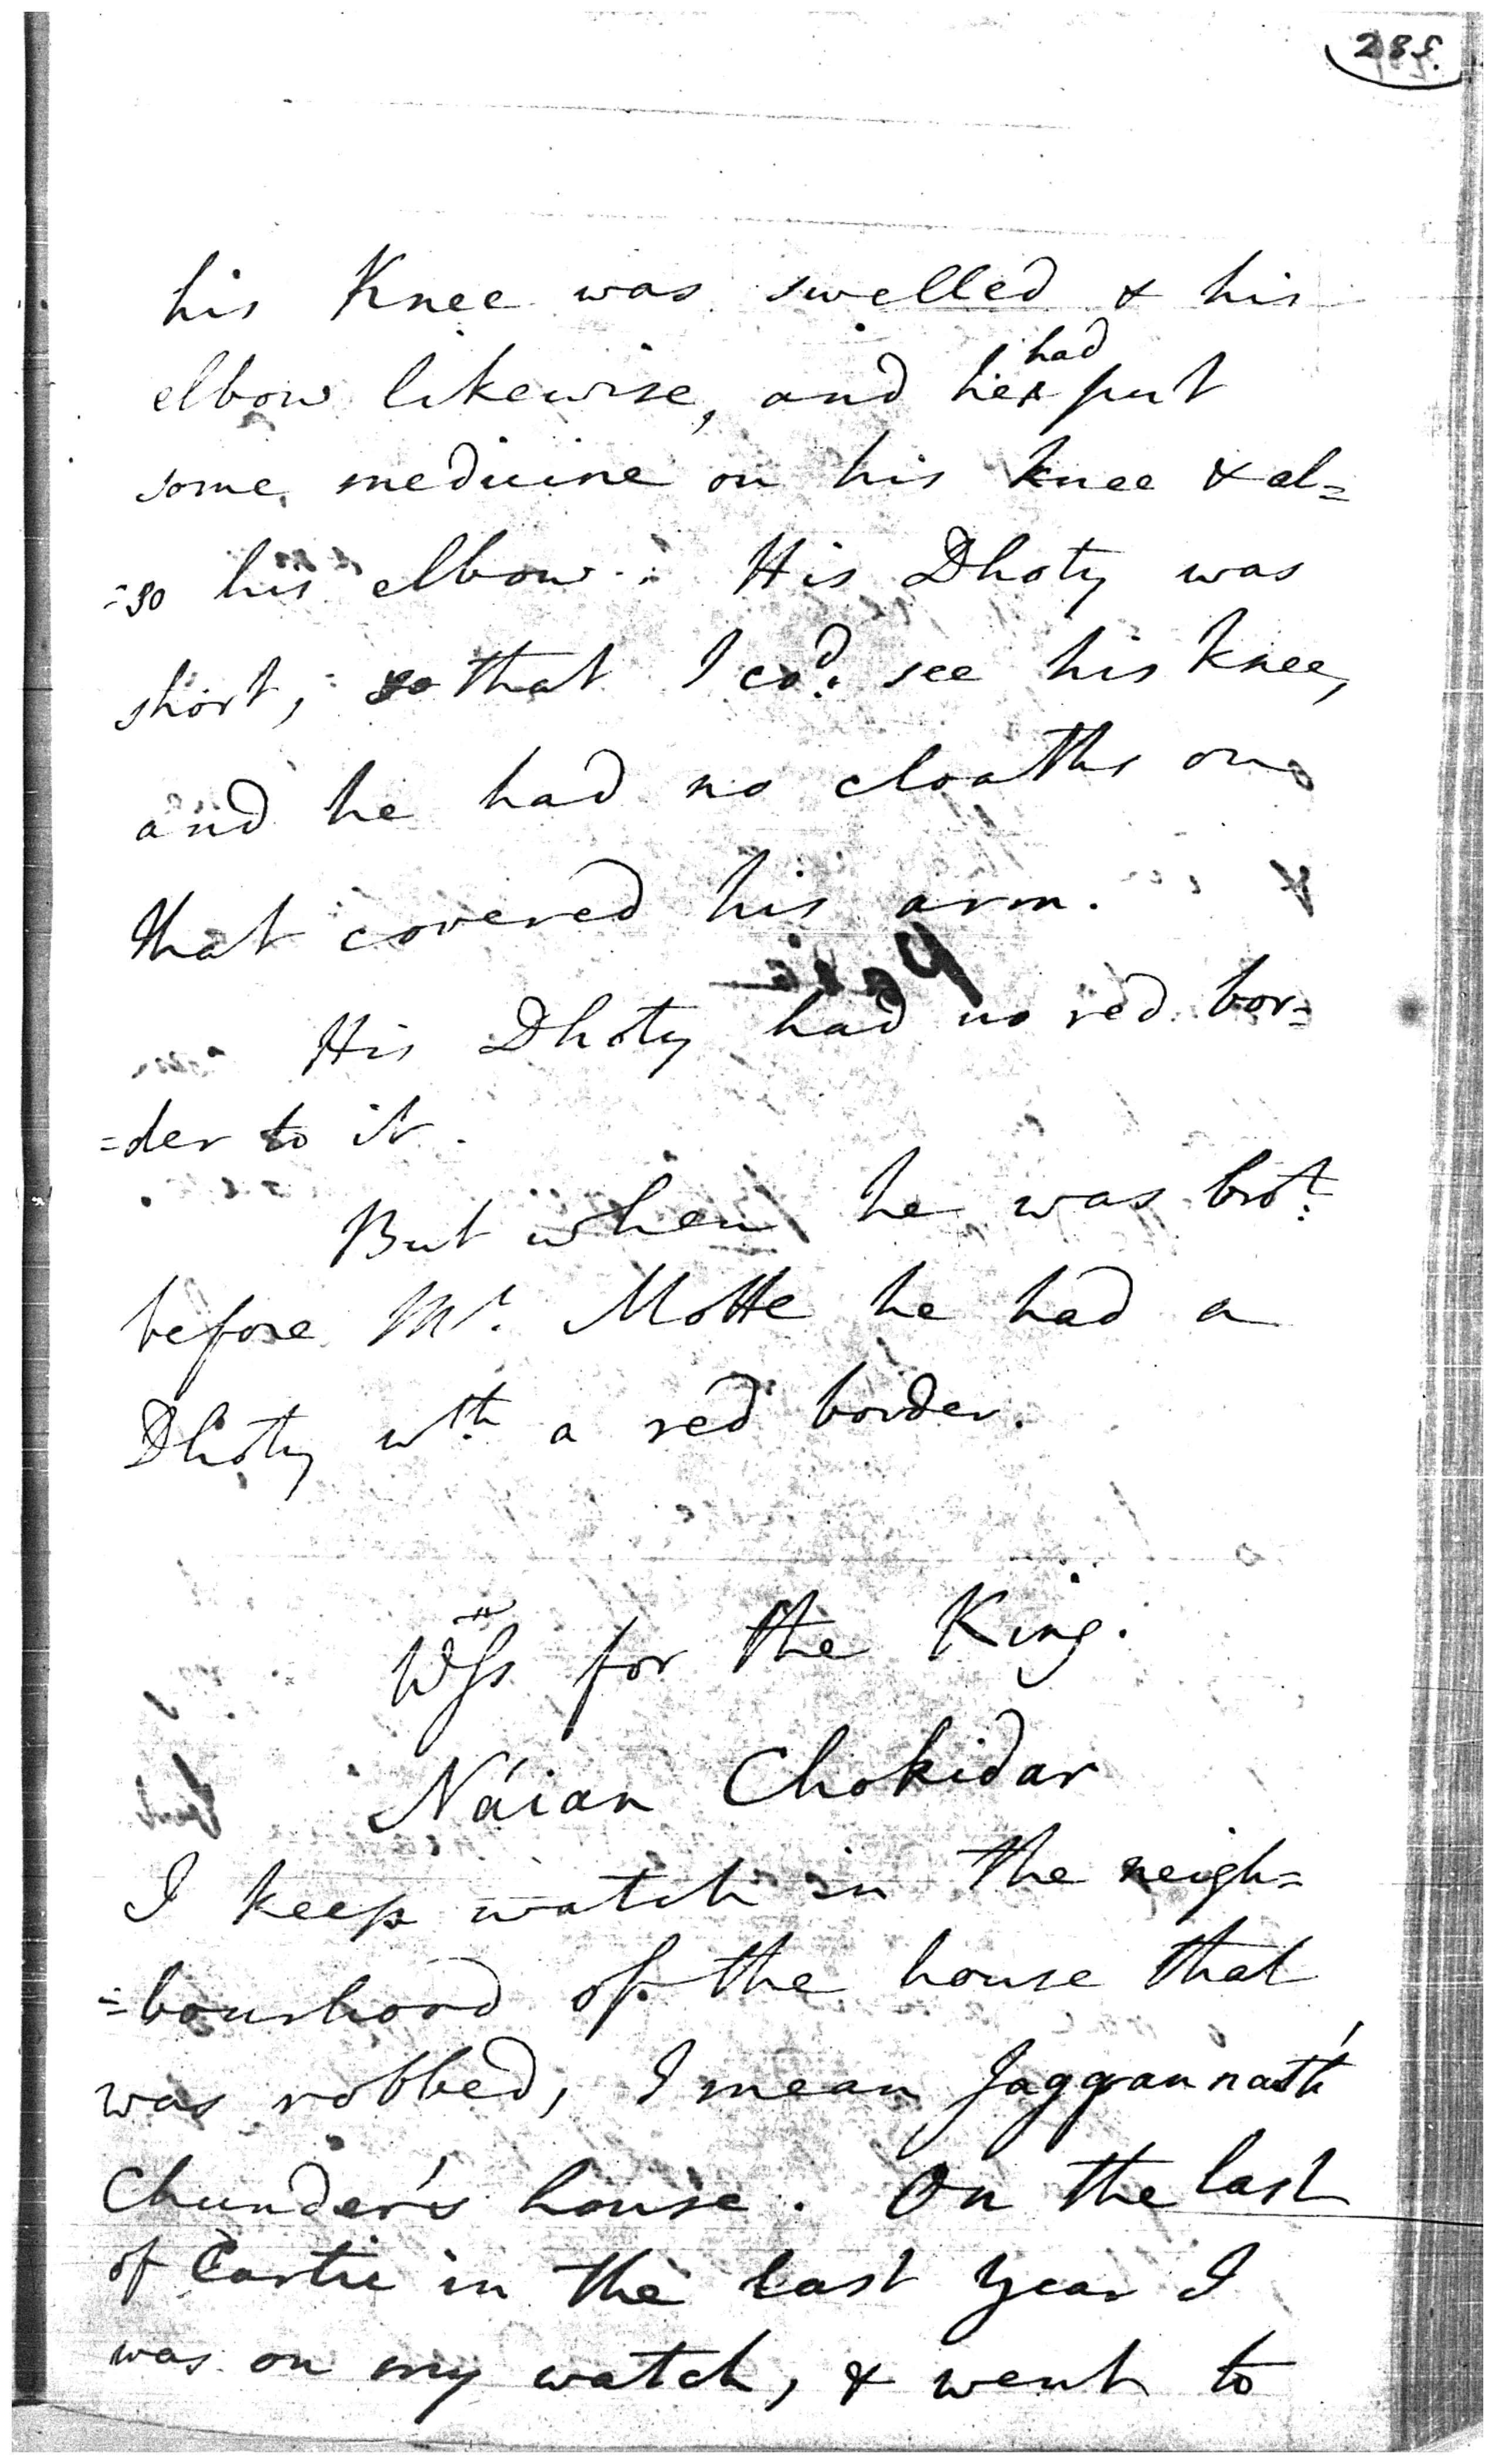 his Knee was swelled & his
elbow likewise, and he had put
some medicine on his knee & al=
=so his elbow. His Dhoty was
short, so that I cod. see his knee,
and he had no cloaths on
that covered his arm.
His Dhoty had no red bor=
=der to it.
But when he was brot.
before Mr. Motte he had a
Dhoty wth a red border.
Wss for the King.
Náian Chokidar
I keep watch in the neigh=
=bourhood of the house that
was robbed, I mean Jaggannath
Chunder's house. On the last
of Cartic in the last year I
was on my watch, & went to